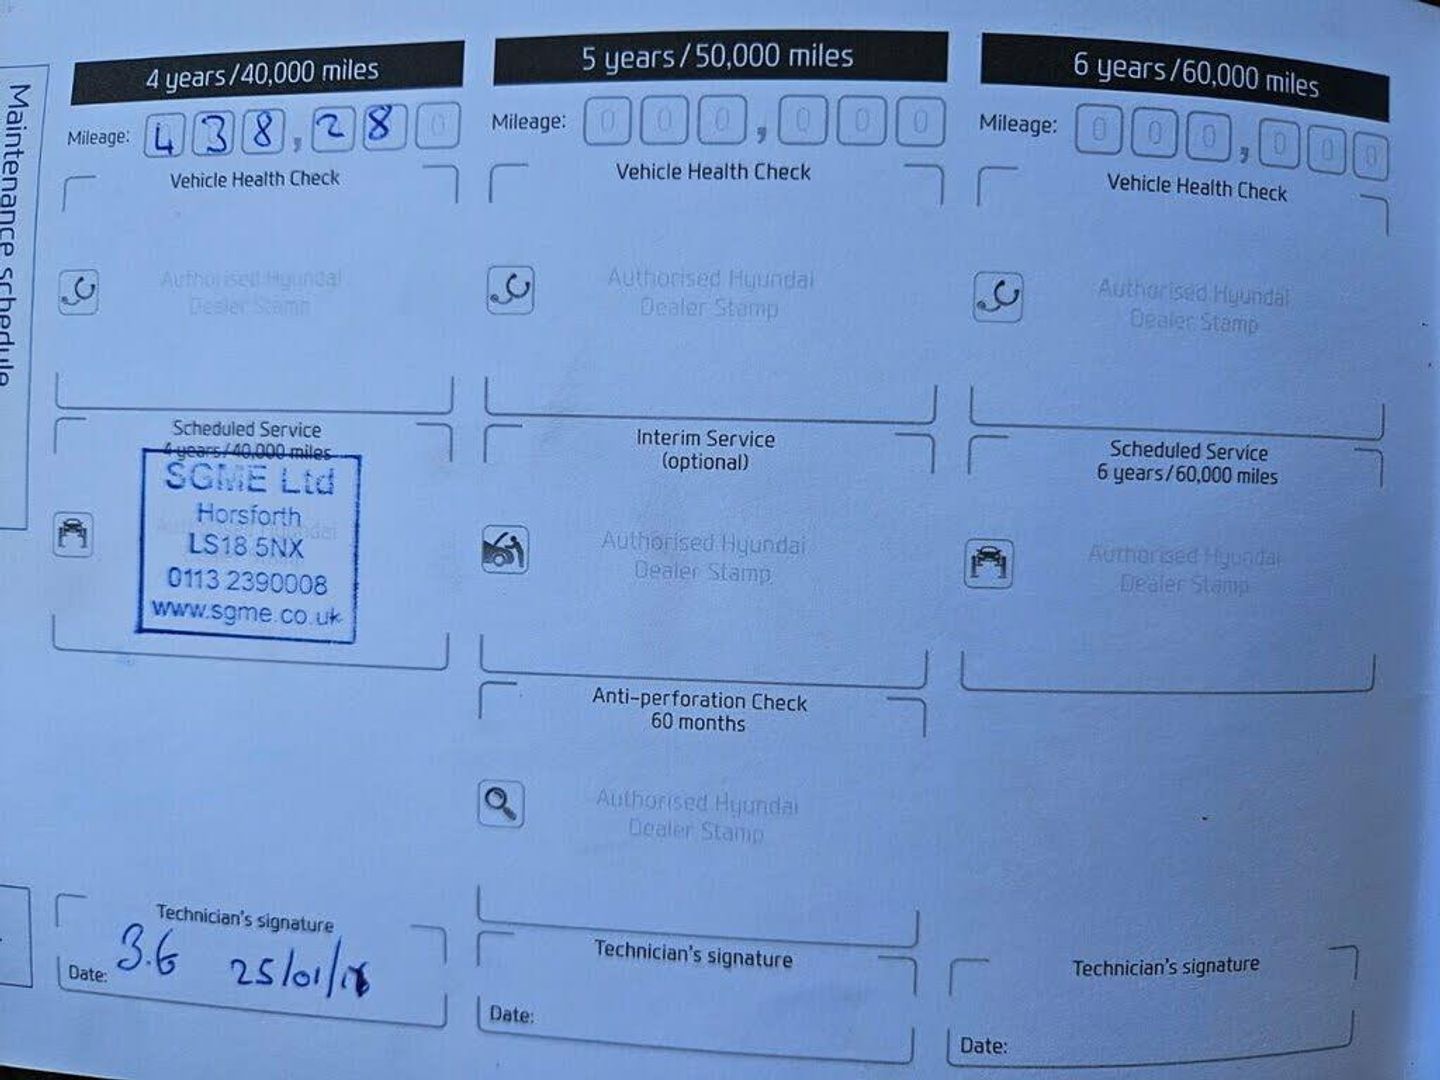 Maintenance schedule
4 years/40,000 miles
Mileage: 438,280
Vehicle Health Check
Authorised Hyundai
Dealer Stamp
Scheduled Service
4 years/40,000 miles
SGME Ltd
Horsforth
LS18 5NX
0113 2390008
www.sgme.co.uk
Technician's signature
Date: 25/01/
5 years/50,000 miles
Mileage: 000,000
Vehicle Health Check
Authorised Hyundai
Dealer Stamp
Interim Service
(optional)
Authorised Hyundai
Dealer Stamp
Anti-perforation Check
60 months
Authorised Hyundai
Dealer Stamp
Technician's signature
Date:
6 years/60,000 miles
Mileage: 000,000
Vehicle Health Check
Authorised Hyundai
Dealer Stamp
Scheduled Service
6 years/60,000 miles
Authorised Hyundai
Dealer Stamp
Technician's signature
Date: